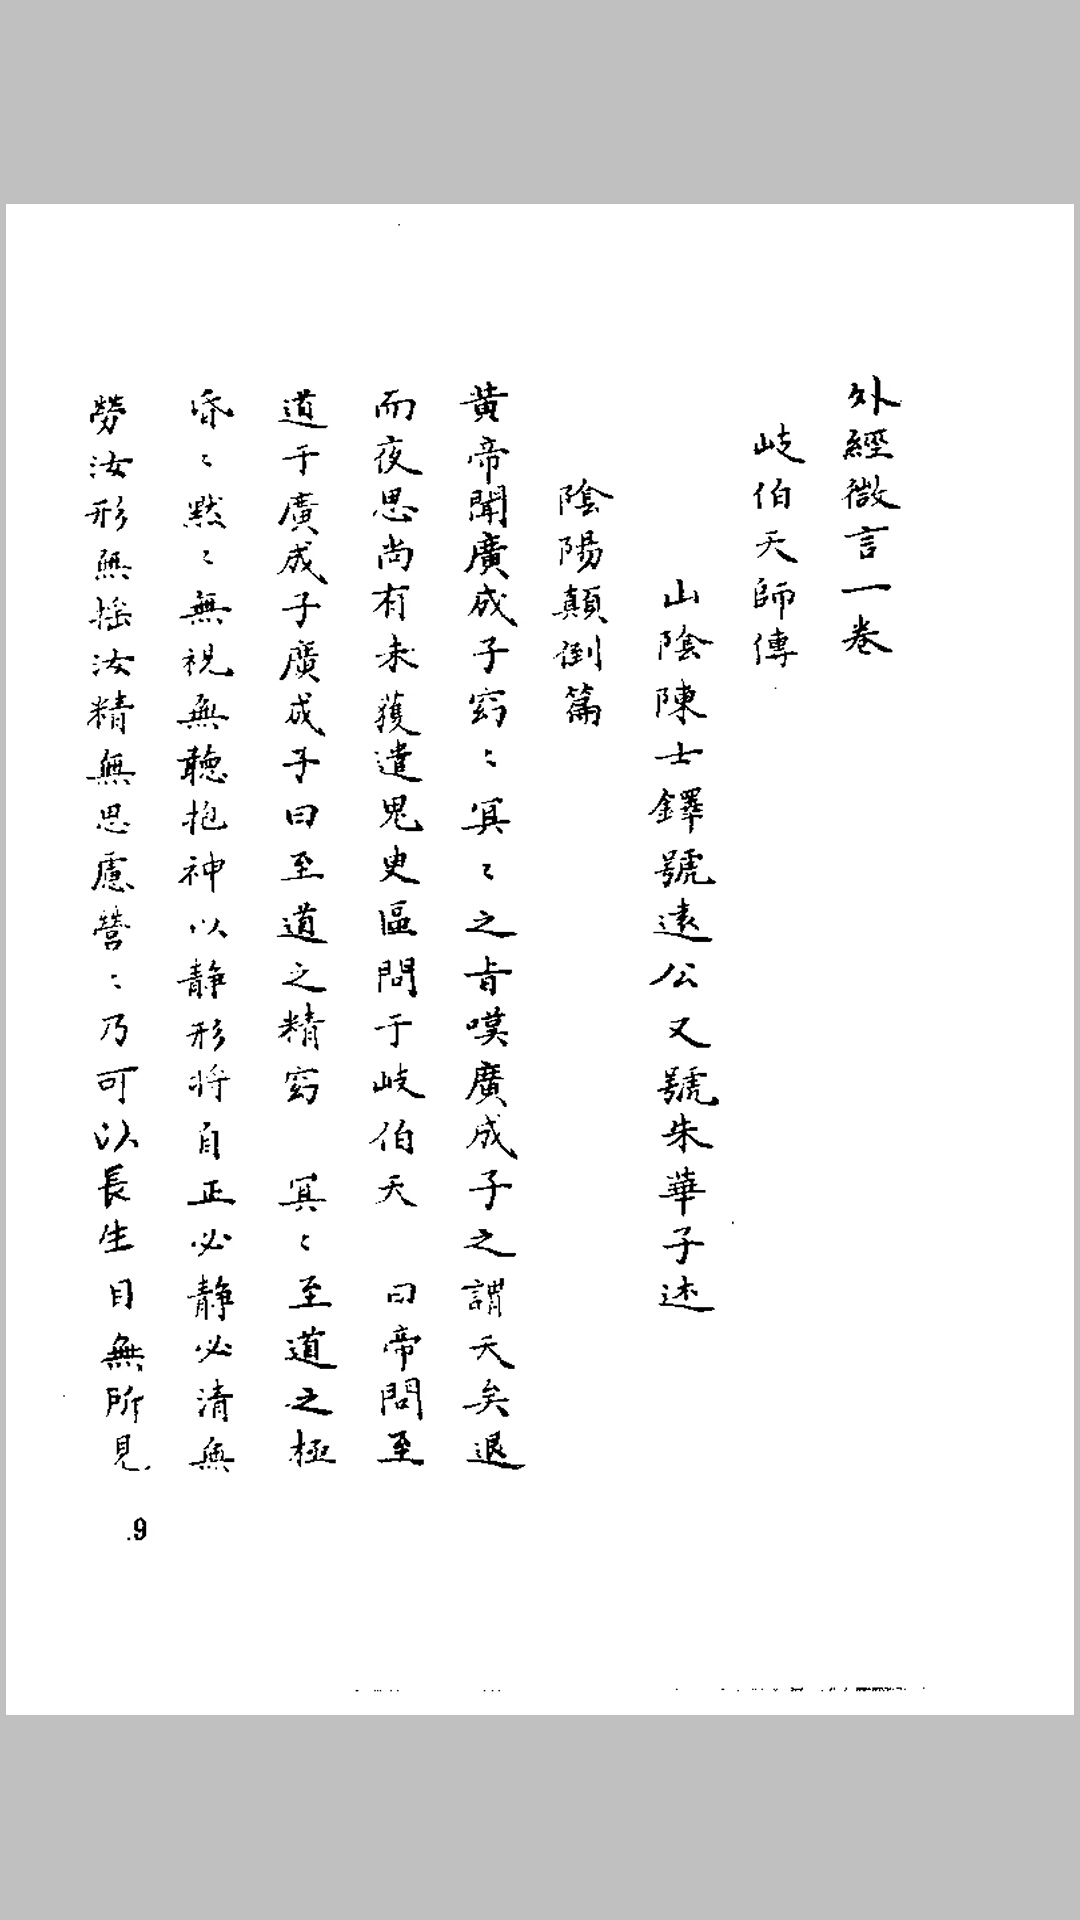 外經微言一卷
岐伯天師傳
山陰陳士鐸號遠公又號朱華子述
陰陽顛倒篇
黃帝聞廣成子窈〻冥〻之旨嘆廣成子之謂天矣退
而夜思尚有未獲遣鬼臾區問于岐伯天 曰帝問至
道于廣成子廣成子曰至道之精窈 冥〻至道之極
昏〻黙〻無視無聽抱神以静形将自正必静必清無
勞汝形無搖汝精無思慮營〻乃可以長生目無所見
.9